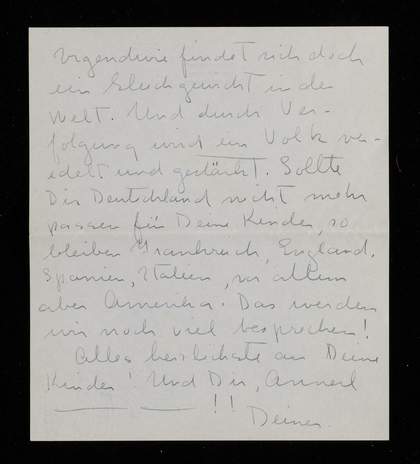 Irgendwie findet sich doch
ein Gleichgewicht in der
Welt. Und durch Ver-
folgung wird ein Volk ver-
edelt und gestärkt. Sollte
Dir Deutschland nicht mehr
passen für Deine Kinder, so
bleiben Frankreich, England,
Spanien, Italien, vor allem
aber Amerika. Das werden
wir noch viel besprechen!
Alles herzlichste an Deine
Kinder! Und Dir,
!!
Deiner